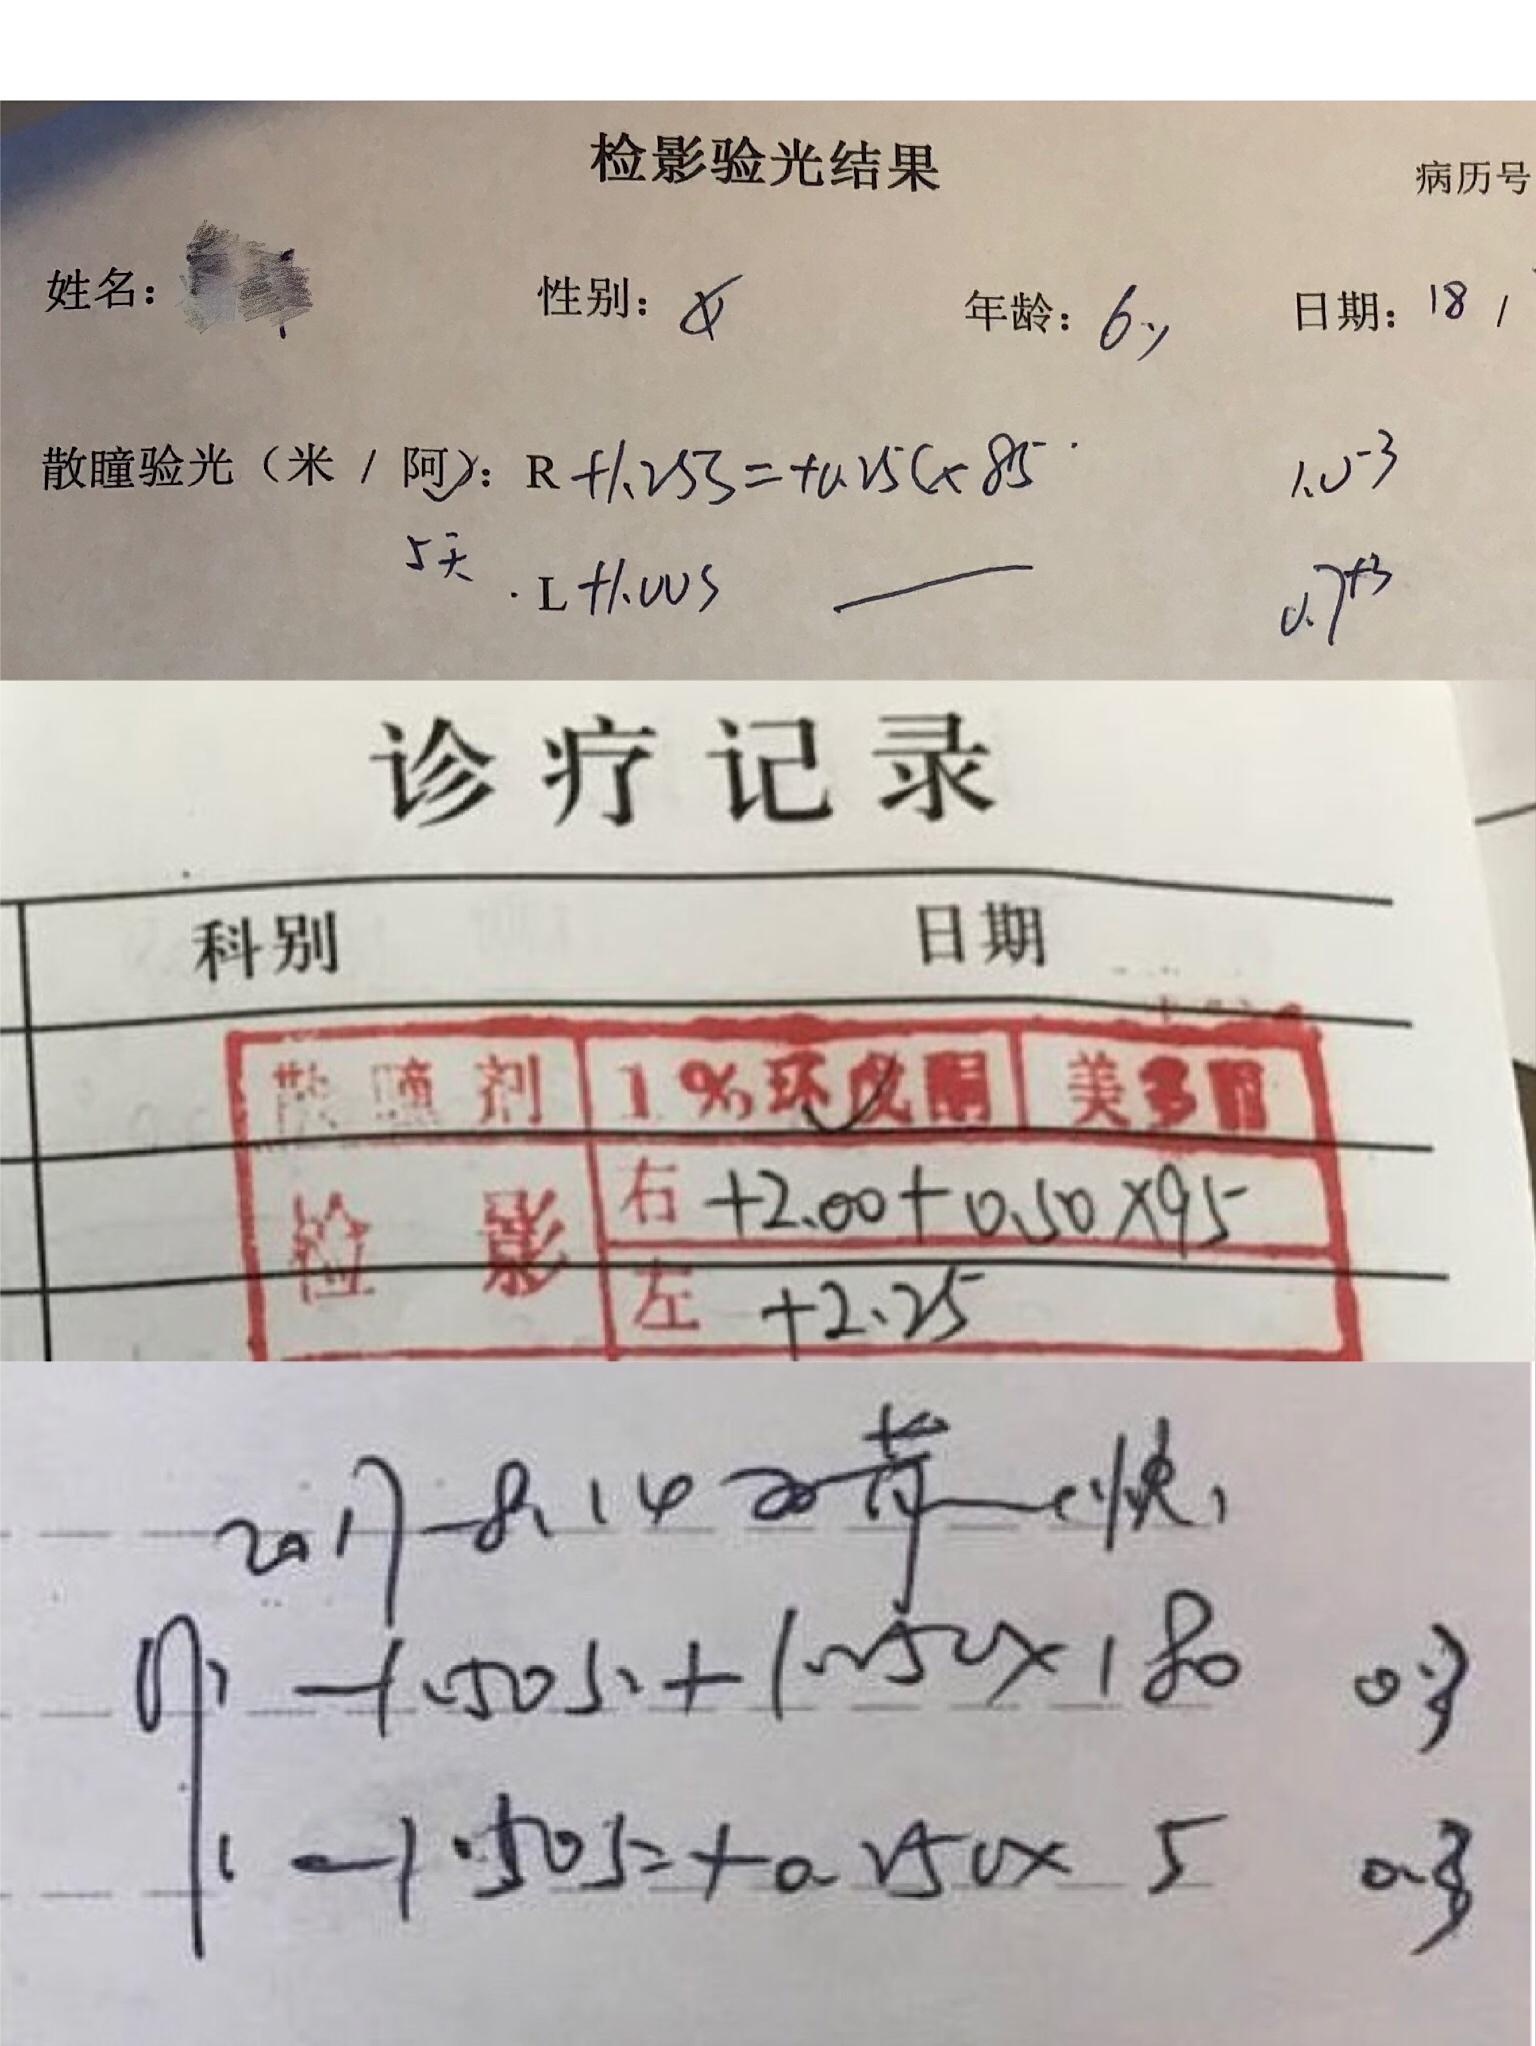 检影验光结果
病历号
姓名：
性别：女
年龄：6y
日期：18 /
散瞳验光（米 / 阿）：R +1.25S=+0.25C×85° 1.0-3
5天
L +1.00S 0.7+3
诊疗记录
科别 日期
散瞳剂 1%环戊酮 美多丽
检影
右 +2.00+0.50×95
左 +2.25
2017-8.14
-1.50S=+1.25C×180 0.3
-1.50S=+0.25C× 5 0.3